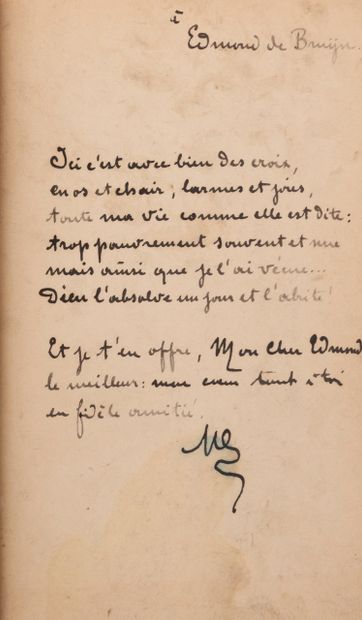 à
Edmond de Bruijn.
Ici c'est avec bien des croix,
en os et chair, larmes et joies,
toute ma vie comme elle est dite:
trop pauvrement souvent et nue
mais ainsi que je l'ai vécue...
Dieu l'absolve un jour et l'abrite!
Et je t'en offre, Mon cher Edmond
le meilleur: mon cœur tout à toi
en fidèle amitié.